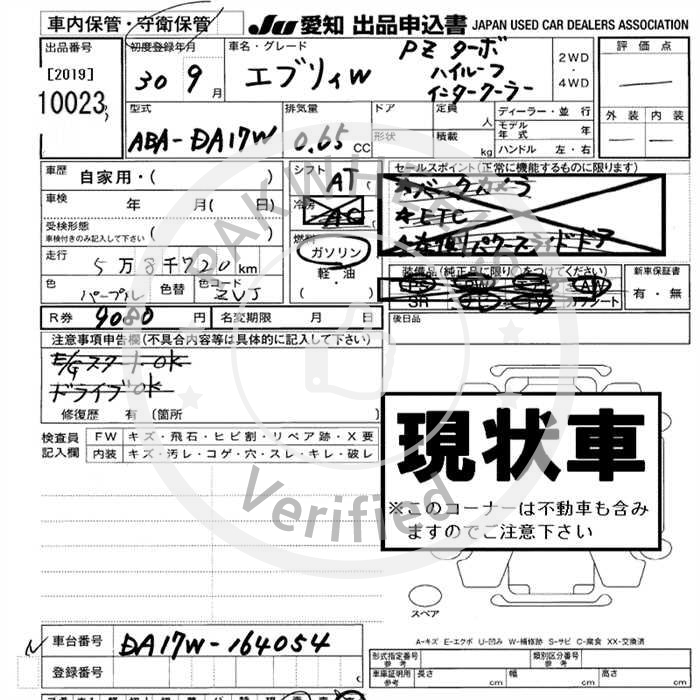 車内保管・守衛保管
JU 愛知 出品申込書 JAPAN USED CAR DEALERS ASSOCIATION
出品番号
[2019]
10023
初度登録年月
30 9月
車名・グレード
エブリイW
PZ ターボ
ハイルーフ
インタークーラー
2WD
・
4WD
評価点
外装 内装
型式
ABA-DA17W
排気量
0.65 CC
ドア
形状
定員
人
積載
kg
ディーラー・並行
モデル年式 年
ハンドル 左・右
車歴
自家用・( )
車検
年 月( 日)
受検形態
車検付きのみ記入して下さい ( )
走行
5万8千720km
色
パープル
色替
色コード
ZVJ
シフト
AT
冷房
AC
燃料
ガソリン
軽・油
セールスポイント(正常に機能するものに限ります)
*バックカメラ
*ETC
*左側パワースライドドア
装備品(純正品に限り○をつけてください)
PS PW AW
SR TV カワシート
新車保証書
有・無
R券 9080 円 名変期限 月 日
後日品
注意事項申告欄(不具合内容等は具体的に記入して下さい)
E/GスタートOK
ドライブOK
修復歴 有(箇所
検査員
記入欄
FW キズ・飛石・ヒビ割・リペア跡・X要
内装 キズ・汚レ・コゲ・穴・スレ・キレ・破レ
現状車
※このコーナーは不動車も含み
ますのでご注意下さい
スペア
A-キズ E-エクボ U-凹み W-補修跡 S-サビ C-腐食 XX-交換済
車台番号 DA17W-164054
登録番号
形式指定番号
参考
類別区分番号
参考
車庫証明用
参考
長さ cm 幅 cm 高さ cm
PAKWHEELS.COM
Verified